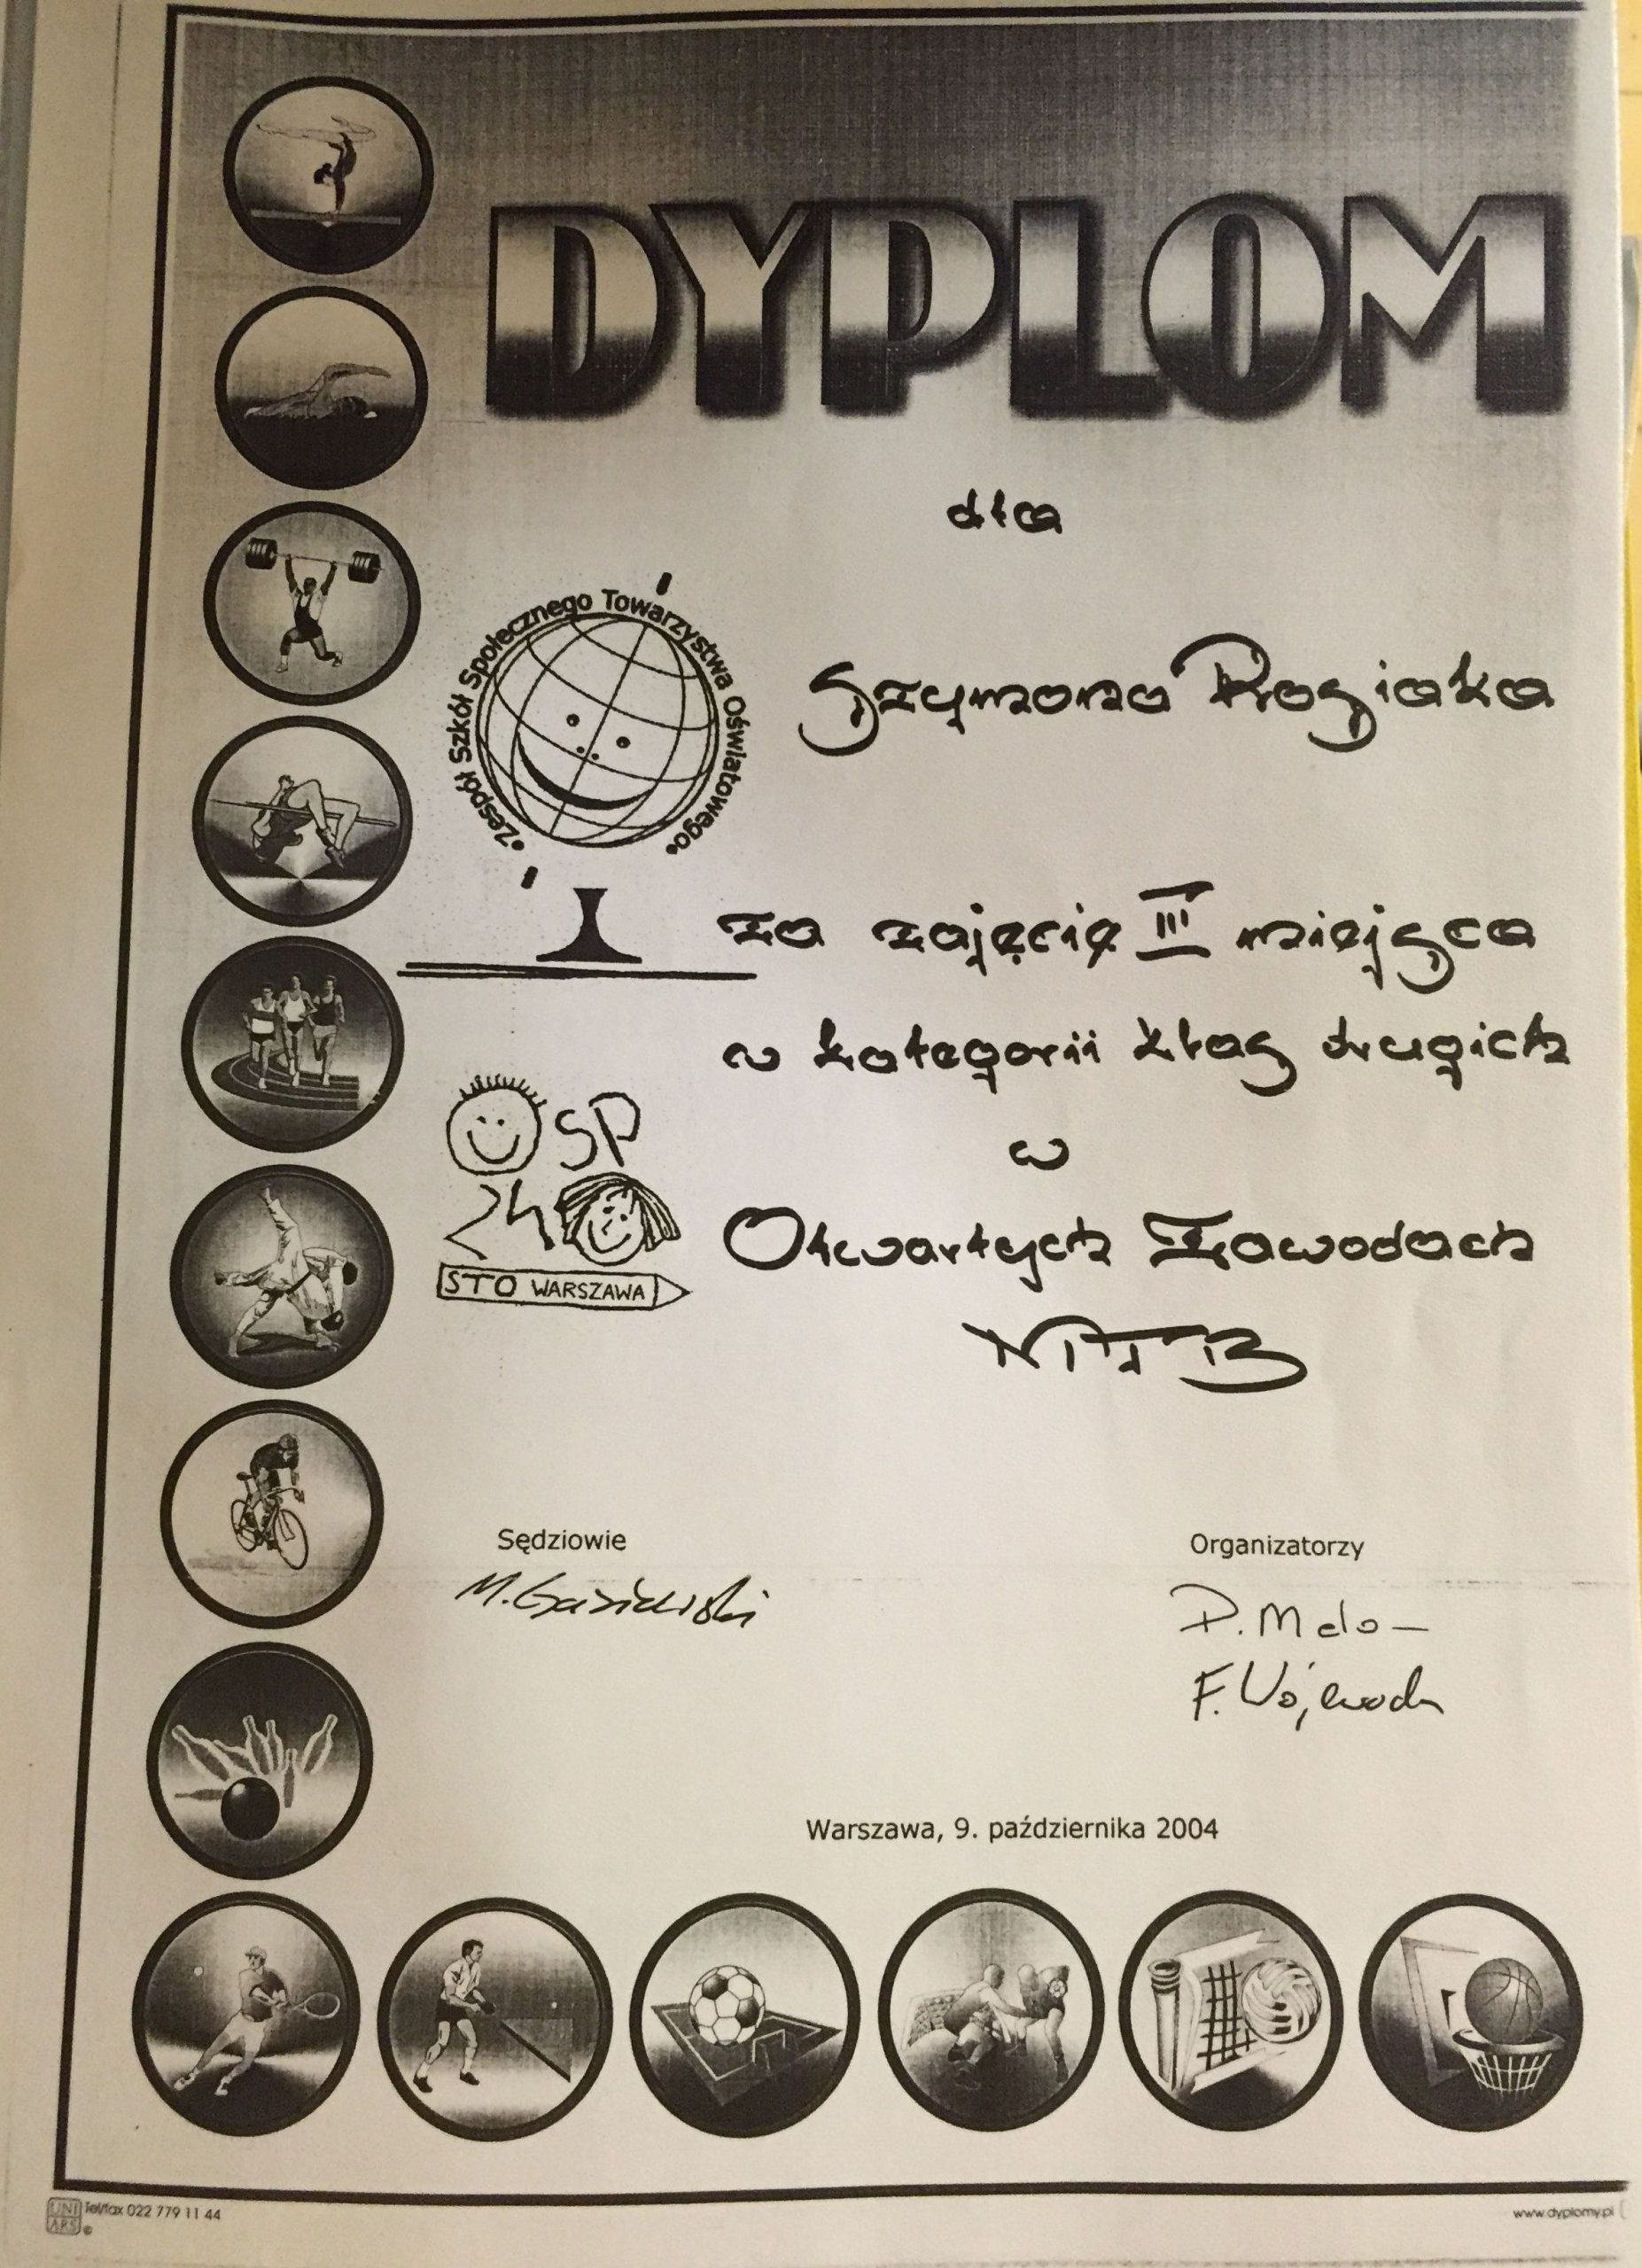 DYPLOM
dla
•Zespół Szkół Społecznego Towarzystwa Oświatowego•
Szymona Rosiaka
za zajęcie III miejsca
w kategorii klas drugich
w
SP
24
STO WARSZAWA
Otwartych Zawodach
Sędziowie
Organizatorzy
Warszawa, 9. października 2004
UNI
ARS
Tel/fax 022 779 11 44
©
www.dyplomy.pl